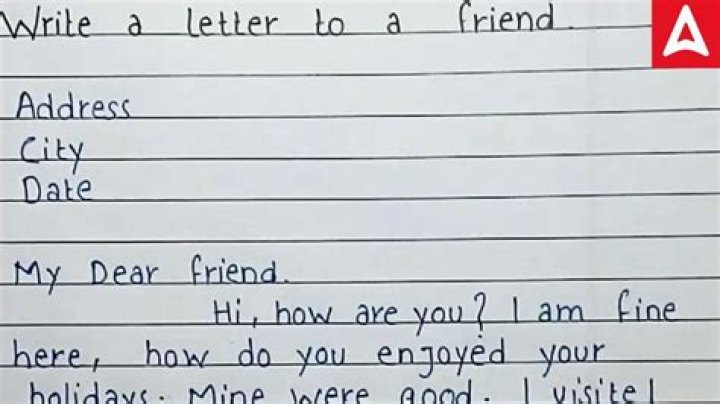 Write a letter to a friend.
Address
City
Date
My Dear friend.
Hi, how are you? I am fine
here, how do you enjoyed your
holidays. Mine were good. I